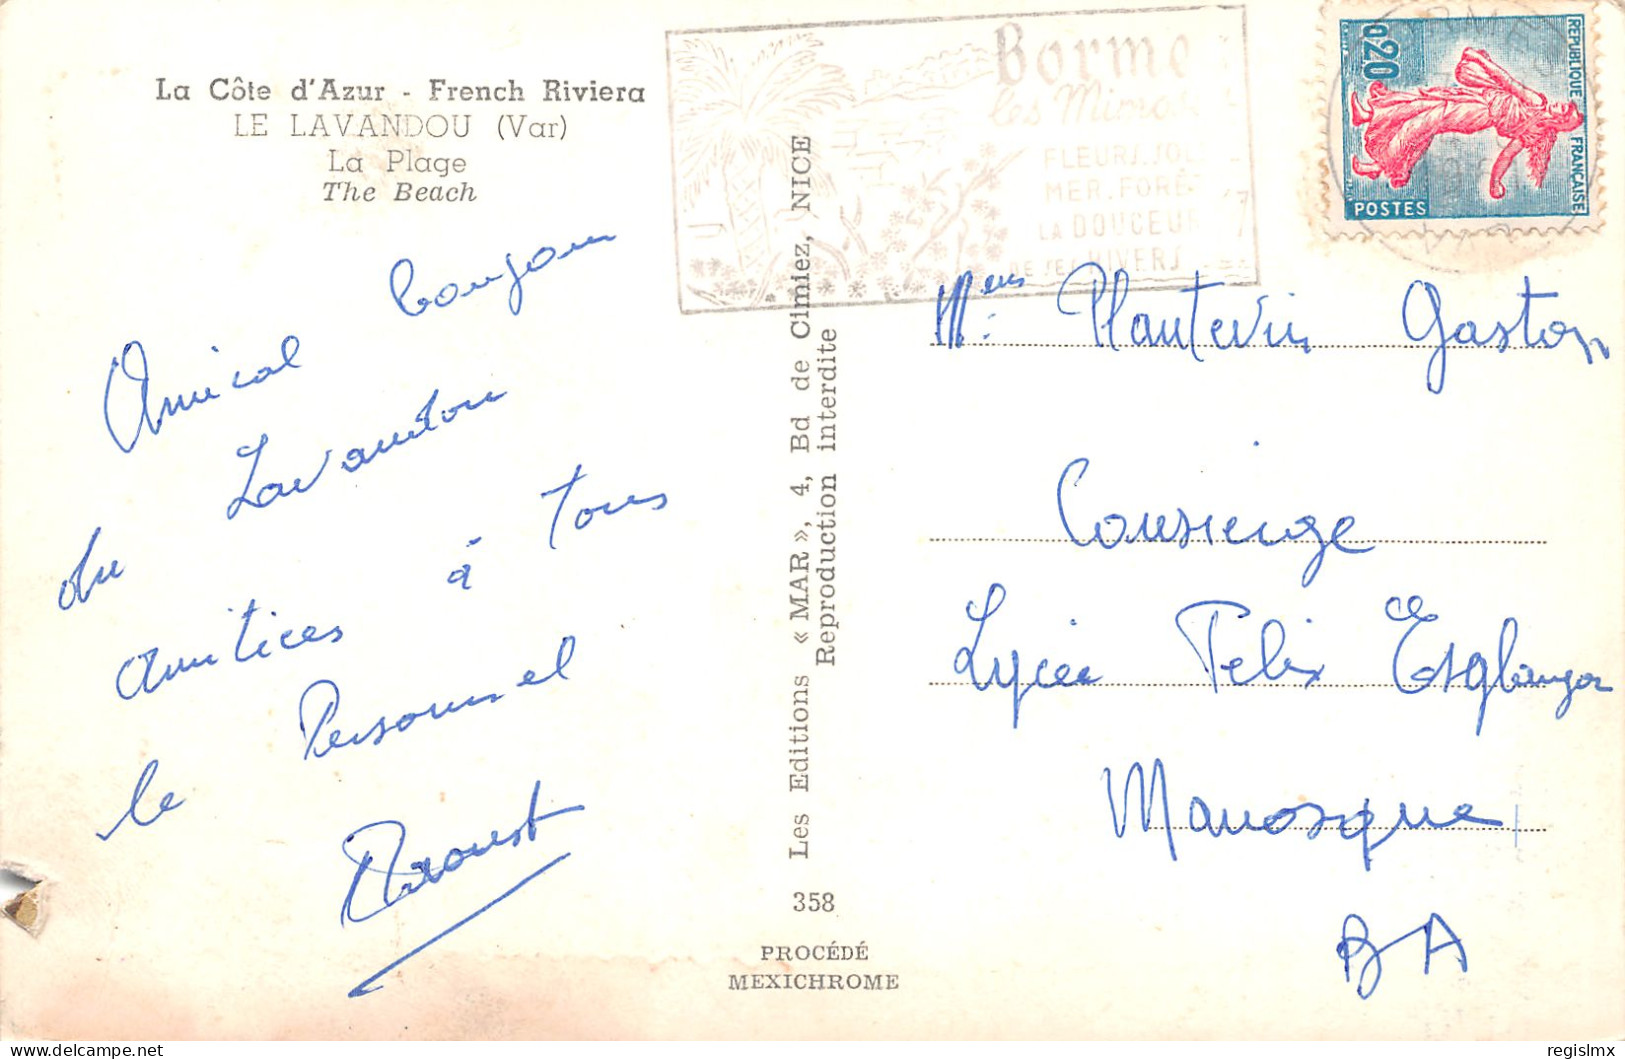 La Côte d'Azur - French Riviera
LE LAVANDOU (Var)
La Plage
The Beach
Amical bonjour
du Lavandou
amitiés à tous
le Personnel
Les Editions « MAR », 4, Bd de Cimiez, NICE
Reproduction interdite
358
PROCÉDÉ
MEXICHROME
Borme
les Mimosa
FLEURS. JOL
MER. FORÊ
LA DOUCEUR
DE SES HIVERS
0,20
REPUBLIQUE FRANÇAISE
POSTES
Plantevin Gaston
Consierge
Lycée Félix Esglangon
Manosque
BA
regislmx